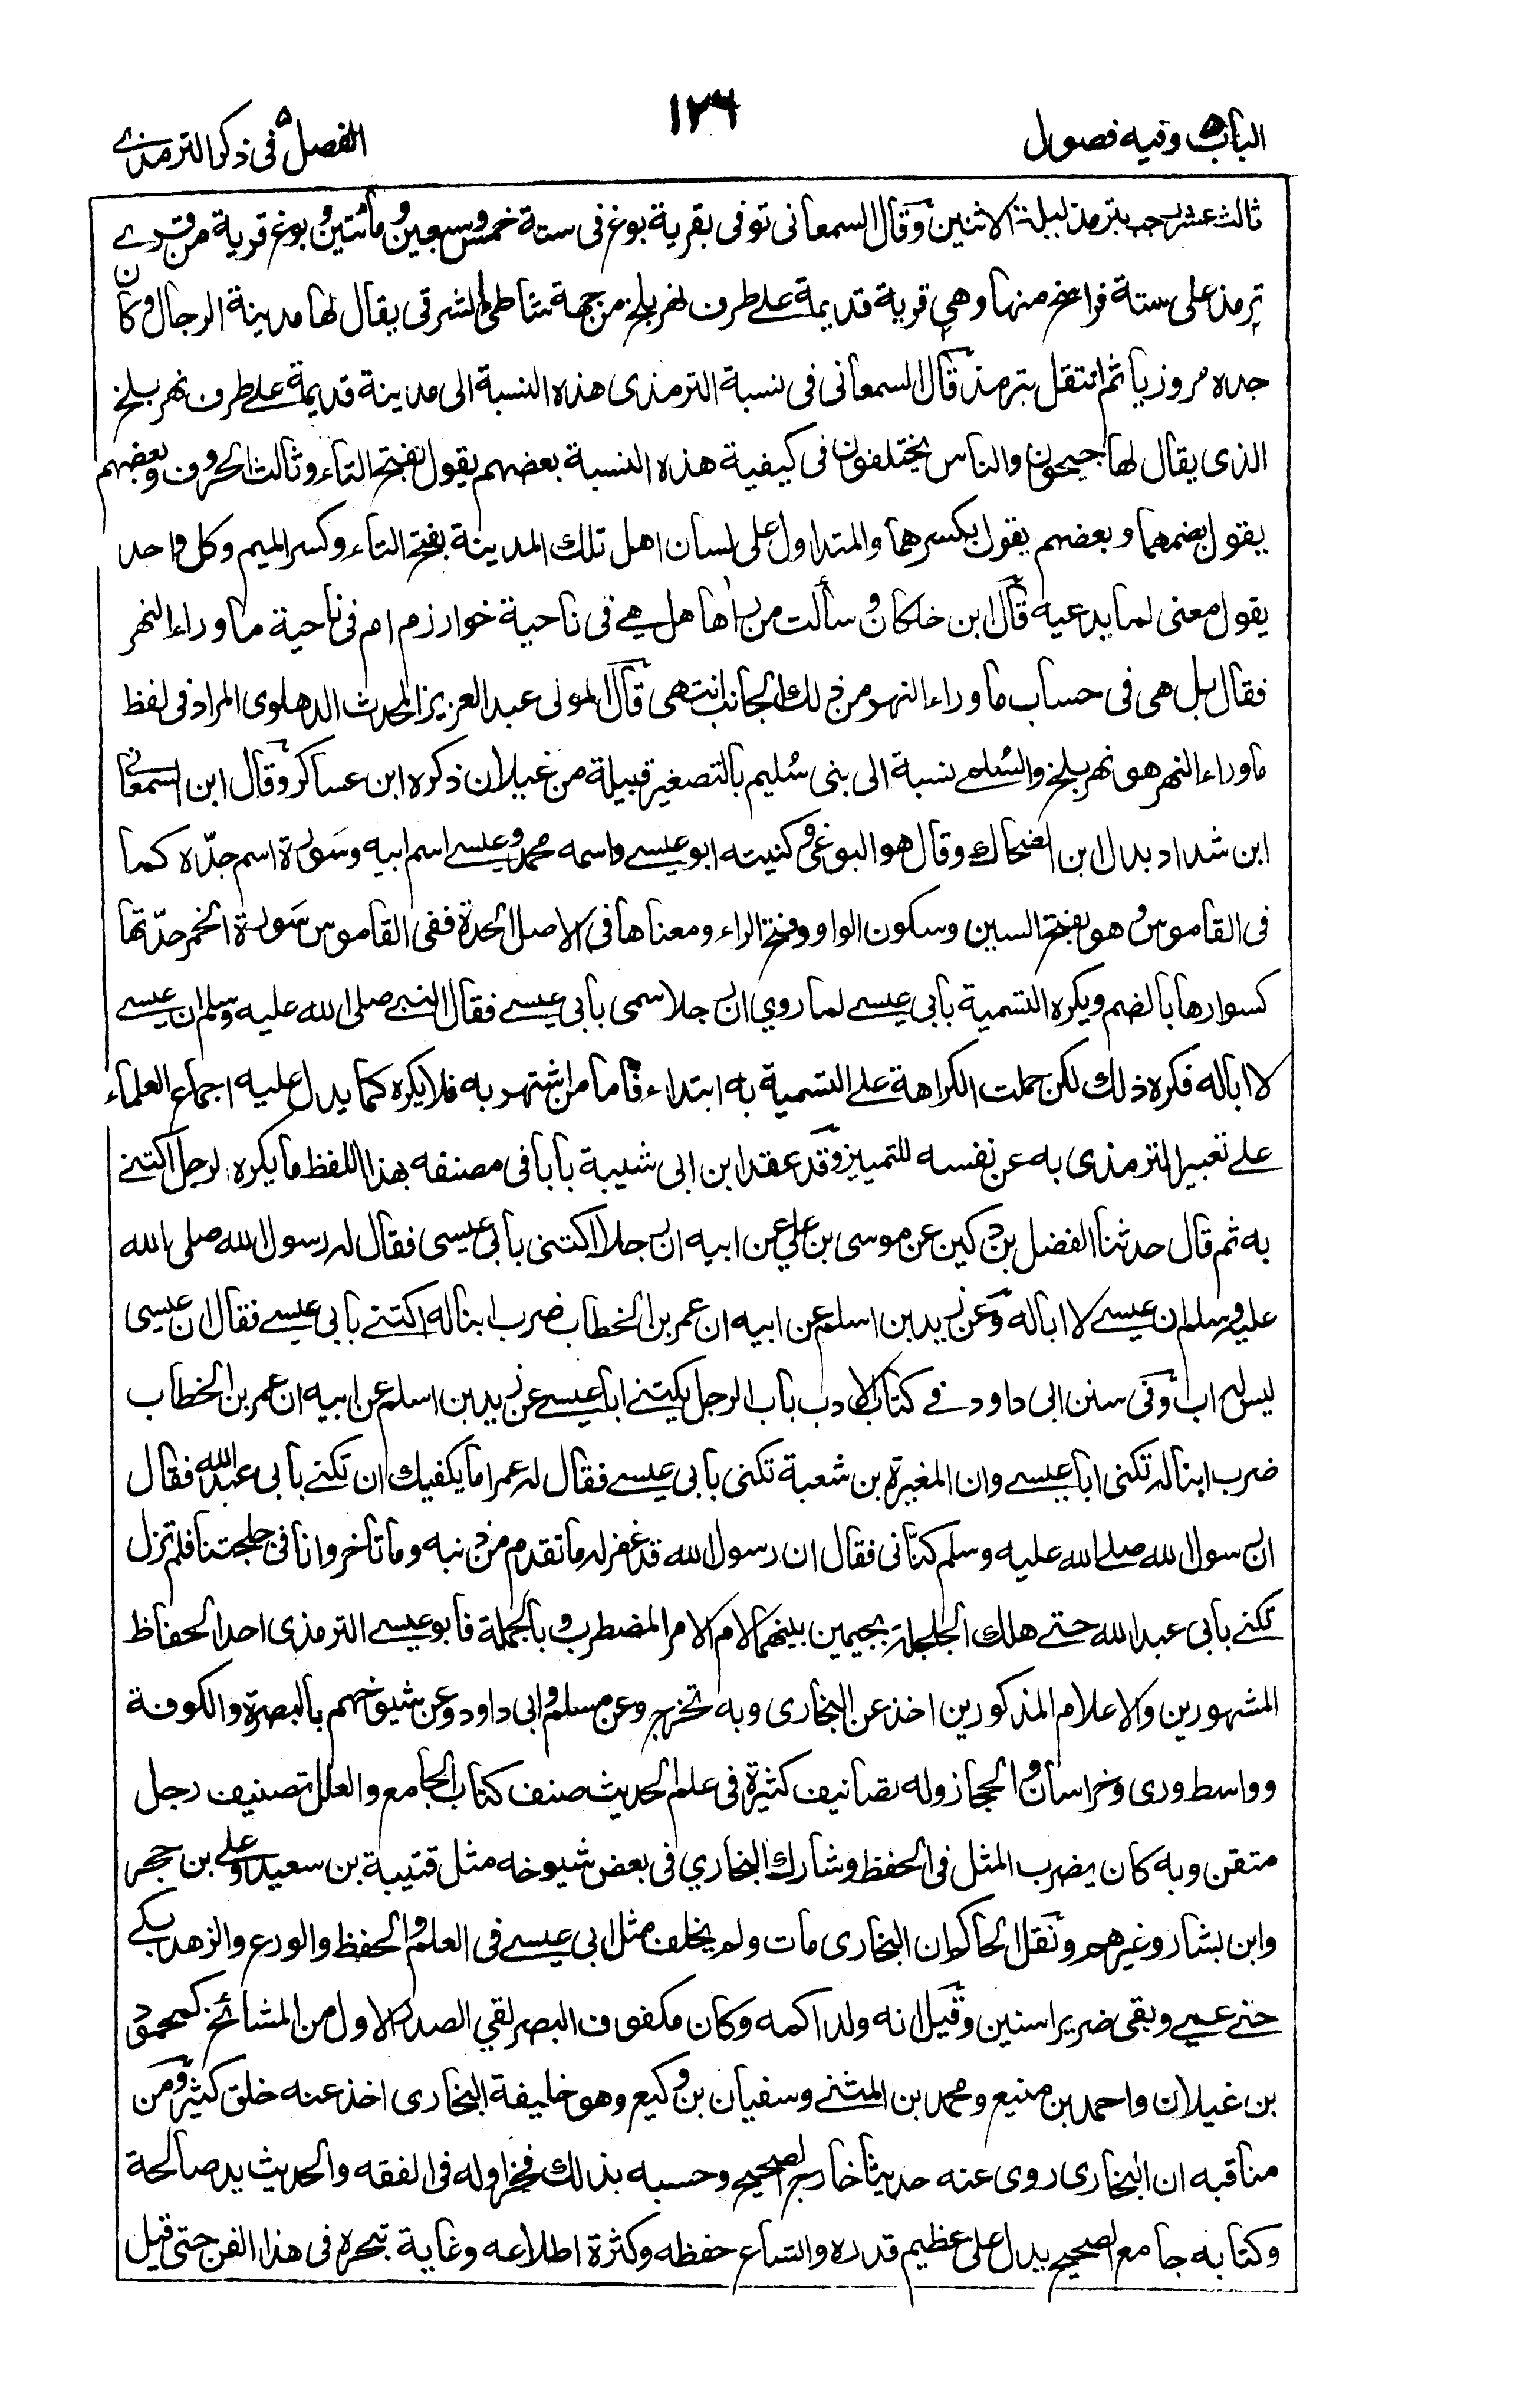 الباب ٥ وفيه فصول
١٢٦
الفصل ٥ في ذكر الترمذي
ثالث عشر رجب بترمذ ليلة الاثنين وقال السمعاني توفى بقرية بوغ فى سنة خمس وسبعين ومأتين وبوغ قرية من قرى
ترمذ على ستة فراسخ منها وهى قرية قديمة على طرف نهر بلخ من جهة شاطئ الشرقى يقال لها مدينة الرجال وكان
جده مروزيا ثم انتقل بترمذ قال السمعانى فى نسبة الترمذى هذه النسبة الى مدينة قديمة على طرف نهر بلخ
الذى يقال لها جيحون والناس يختلفون فى كيفية هذه النسبة بعضهم يقول بفتح التاء وثالث الحروف وبعضهم
يقول بضمهما وبعضهم يقول بكسرهما والمتداول على لسان اهل تلك المدينة بفتح التاء وكسر الميم وكل واحد
يقول معنى لما يدعيه قال ابن خلكان وسألت من رأها هل هى فى ناحية خوارزم ام فى ناحية ماوراء النهر
فقال بل هى فى حساب ماوراء النهر من ذلك الجانب انتهى قال المولى عبد العزيز المحدث الدهلوى المراد فى لفظ
ماوراء النهر هو نهر بلخ والسُلمى نسبة الى بنى سُليم بالتصغير قبيلة من غيلان ذكره ابن عساكر وقال ابن السمعانى
ابن شداد بدل ابن الضحاك وقال هو البوغى وكنيته ابو عيسى واسمه محمد وعيسى اسم ابيه وسَورة اسم جدّه كما
فى القاموس وهو بفتح السين وسكون الواو وفتح الراء ومعناها فى الاصل الحدة ففى القاموس سَورة الخمر حدّتها
كسوارها بالضم ويكره التسمية بأبى عيسى لما روي ان رجلا سمى بأبى عيسى فقال النبى صلى الله عليه وسلم ان عيسى
لا اباله فكره ذلك لكن حملت الكراهة على التسمية به ابتداء فاما من اشتهر به فلا يكره كما يدل عليه اجماع العلماء
على تعبير الترمذى به عن نفسه للتمييز وقد عقد ابن ابى شيبة بابا فى مصنفه بهذا اللفظ ما يكره لرجل اكتنى
به ثم قال حدثنا الفضل بن دكين عن موسى بن علي عن ابيه ان رجلا اكتنى بابى عيسى فقال له رسول الله صلى الله
عليه وسلم ان عيسى لا اباله وعن زيد بن اسلم عن ابيه ان عمر بن الخطاب ضرب ابنا له اكتنى بابى عيسى فقال ان عيسى
ليس له اب وفى سنن ابى داود فى كتاب الادب باب الرجل يكتنى ابا عيسى عن زيد بن اسلم عن ابيه ان عمر بن الخطاب
ضرب ابنا له تكنى ابا عيسى وان المغيرة بن شعبة تكنى بابى عيسى فقال له عمر اما يكفيك ان تكنى بابى عبد الله فقال
ان رسول الله صلى الله عليه وسلم كنّانى فقال ان رسول الله قد غفر له ما تقدم من ذنبه وما تأخر وانا فى جلجتنا فلم تزل
تكنى بابى عبد الله حتى هلك الجلجلة بجيمين بينهما لام الامر المضطرب وبالجملة فابو عيسى الترمذى احد الحفاظ
المشهورين والاعلام المذكورين اخذ عن البخارى وبه تخرج وعن مسلم وابى داود وعن شيوخهم بالبصرة والكوفة
وواسط ورى وخراسان والحجاز وله تصانيف كثيرة فى علم الحديث صنف كتاب الجامع والعلل تصنيف رجل
متقن وبه كان يضرب المثل فى الحفظ وشارك البخاري فى بعض شيوخه مثل قتيبة بن سعيد وعلى بن حجر
وابن بشار وغيرهم ونقل الحاكم ان البخارى مات ولم يخلف مثل ابى عيسى فى العلم والحفظ والورع والزهد بكى
حتى عمى وبقى ضريرا سنين وقيل انه ولد اكمه وكان مكفوف البصر لقي الصدر الاول من المشائخ كمحمود
بن غيلان واحمد بن منيع ومحمد بن المثنى وسفيان بن وكيع وهو خليفة البخارى اخذ عنه خلق كثير ومن
مناقبه ان البخارى روى عنه حديثا خارج الصحيح وحسبه بذلك فخرا وله فى الفقه والحديث يد صالحة
وكتابه جامع الصحيح يدل على عظيم قدره واتساع حفظه وكثرة اطلاعه وغاية تبحره فى هذا الفن حتى قيل